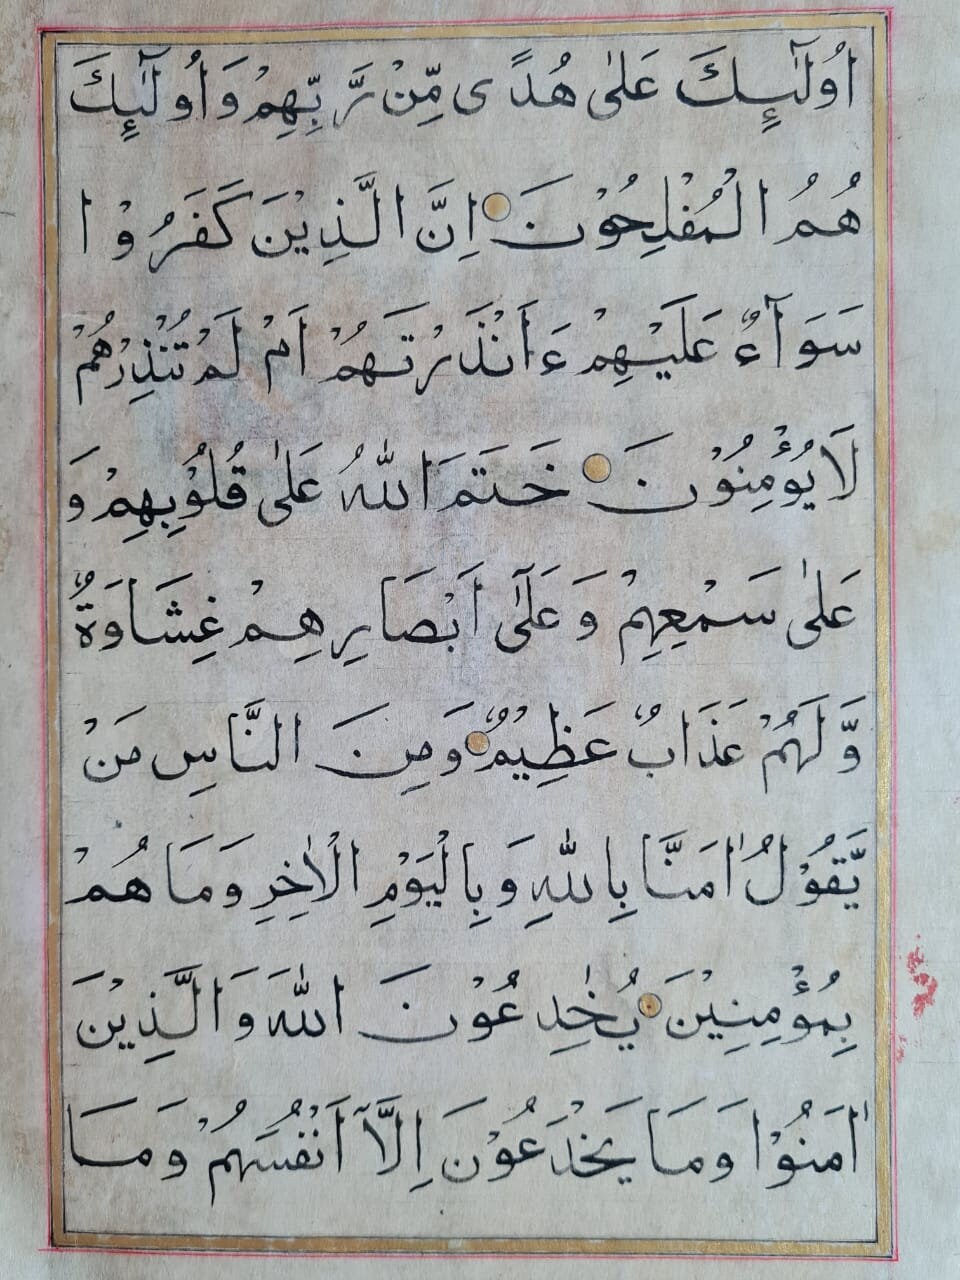 اُولٰٓئِكَ عَلٰى هُدًى مِّنْ رَّبِّهِمْ وَاُولٰٓئِكَ
هُمُ الْمُفْلِحُوْنَ اِنَّ الَّذِيْنَ كَفَرُوْا
سَوَآءٌ عَلَيْهِمْ ءَاَنْذَرْتَهُمْ اَمْ لَمْ تُنْذِرْهُمْ
لَايُؤْمِنُوْنَ خَتَمَ اللّٰهُ عَلٰى قُلُوْبِهِمْ وَ
عَلٰى سَمْعِهِمْ وَعَلٰٓى اَبْصَارِهِمْ غِشَاوَةٌ
وَّلَهُمْ عَذَابٌ عَظِيْمٌ وَمِنَ النَّاسِ مَنْ
يَّقُوْلُ اٰمَنَّا بِاللّٰهِ وَبِالْيَوْمِ الْاٰخِرِ وَمَا هُمْ
بِمُؤْمِنِيْنَ يُخٰدِعُوْنَ اللّٰهَ وَالَّذِيْنَ
اٰمَنُوْا وَمَا يَخْدَعُوْنَ اِلَّآ اَنْفُسَهُمْ وَمَا